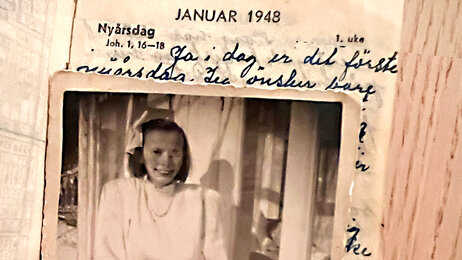 JANUAR 1948
Nyårsdag
1. uke
Joh. 1, 16—18
Ja i dag er det första
nyårsdag. Jeg ønsker bare